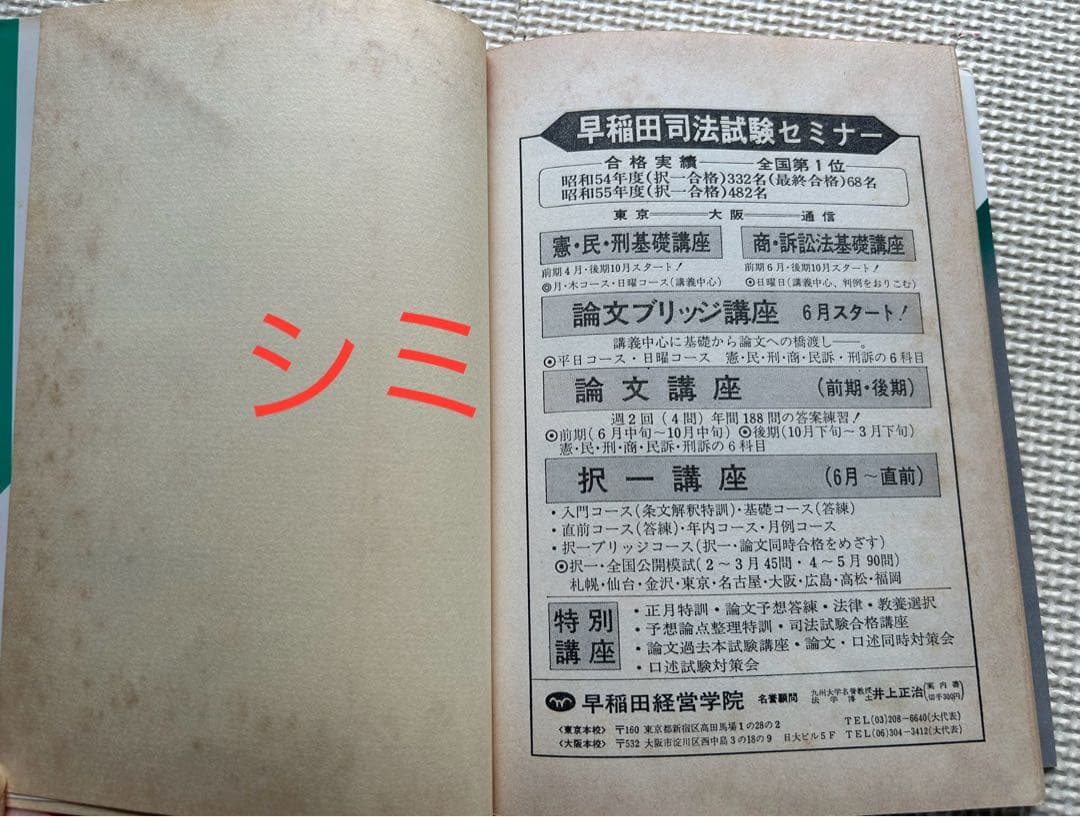 シミ
早稲田司法試験セミナー
合格実績 全国第1位
昭和54年度(択一合格)332名(最終合格)68名
昭和55年度(択一合格)482名
東京 大阪 通信
憲・民・刑基礎講座
前期4月・後期10月スタート!
◎月・木コース・日曜コース(講義中心)
商・訴訟法基礎講座
前期6月・後期10月スタート!
⊙日曜日(講義中心、判例をおりこむ)
論文ブリッジ講座 6月スタート!
講義中心に基礎から論文への橋渡し――。
⊙平日コース・日曜コース 憲・民・刑・商・民訴・刑訴の6科目
論文講座 (前期・後期)
週2回(4問)年間188問の答案練習!
⊙前期(6月中旬～10月中旬) ⊙後期(10月下旬～3月下旬)
憲・民・刑・商・民訴・刑訴の6科目
択一講座 (6月～直前)
・入門コース(条文解釈特訓)・基礎コース(答練)
・直前コース(答練)・年内コース・月例コース
・択一ブリッジコース(択一・論文同時合格をめざす)
⊙択一・全国公開模試(2～3月45問・4～5月90問)
札幌・仙台・金沢・東京・名古屋・大阪・広島・高松・福岡
特別
講座
・正月特訓・論文予想答練・法律・教養選択
・予想論点整理特訓・司法試験合格講座
・論文過去本試験講座・論文・口述同時対策会
・口述試験対策会
早稲田経営学院 名誉顧問 九州大学名誉教授 法学博士 井上正治 (案内書 切手300円)
〈東京本校〉 〒160 東京都新宿区高田馬場1の28の2 TEL(03)208-6640(大代表)
〈大阪本校〉 〒532 大阪市淀川区西中島3の18の9 日大ビル5F TEL(06)304-3412(大代表)